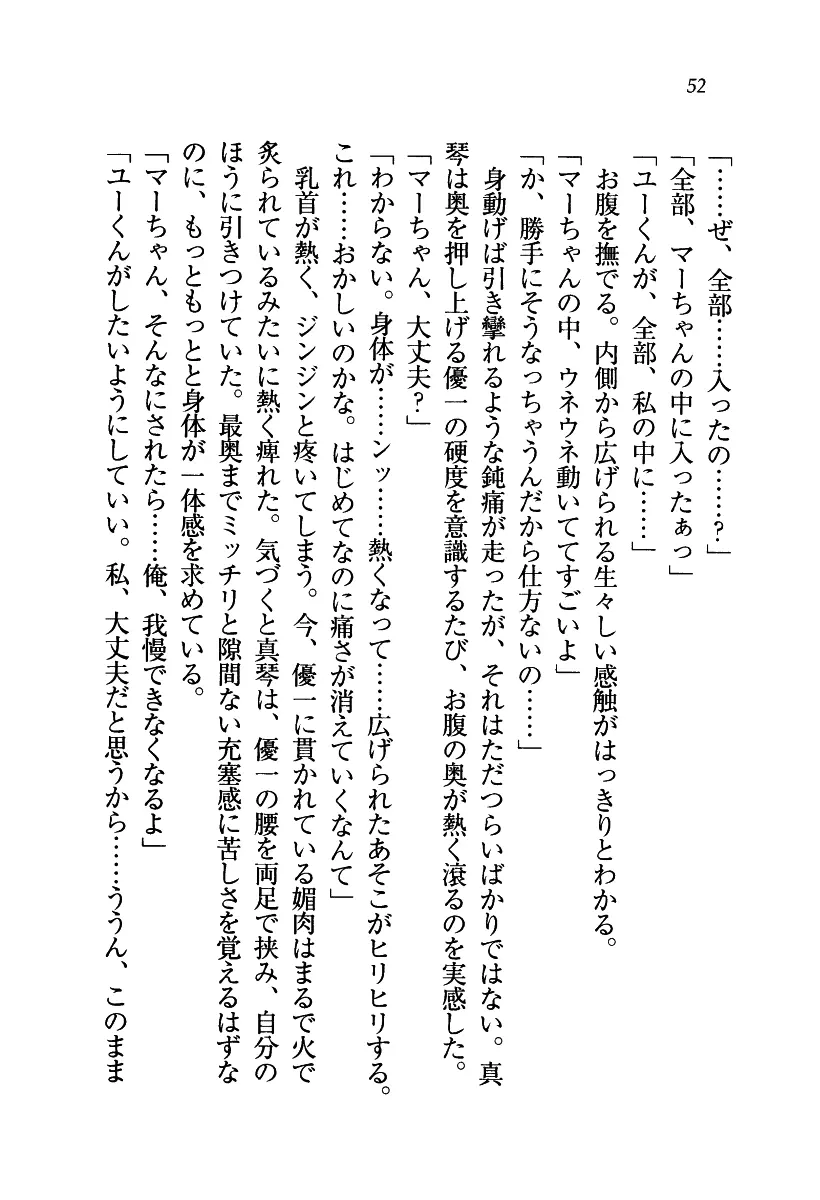 52
「……ぜ、全部……入ったの……？」
「全部、マーちゃんの中に入ったぁっ」
「ユーくんが、全部、私の中に……」
お腹を撫でる。内側から広げられる生々しい感触がはっきりとわかる。
「マーちゃんの中、ウネウネ動いててすごいよ」
「か、勝手にそうなっちゃうんだから仕方ないの……」
身動げば引き攣れるような鈍痛が走ったが、それはただつらいばかりではない。真
琴は奥を押し上げる優一の硬度を意識するたび、お腹の奥が熱く滾るのを実感した。
「マーちゃん、大丈夫？」
「わからない。身体が……ンッ……熱くなって……広げられたあそこがヒリヒリする。
これ……おかしいのかな。はじめてなのに痛さが消えていくなんて」
乳首が熱く、ジンジンと疼いてしまう。今、優一に貫かれている媚肉はまるで火で
炙られているみたいに熱く痺れた。気づくと真琴は、優一の腰を両足で挟み、自分の
ほうに引きつけていた。最奥までミッチリと隙間ない充塞感に苦しさを覚えるはずな
のに、もっともっとと身体が一体感を求めている。
「マーちゃん、そんなにされたら……俺、我慢できなくなるよ」
「ユーくんがしたいようにしていい。私、大丈夫だと思うから……ううん、このまま